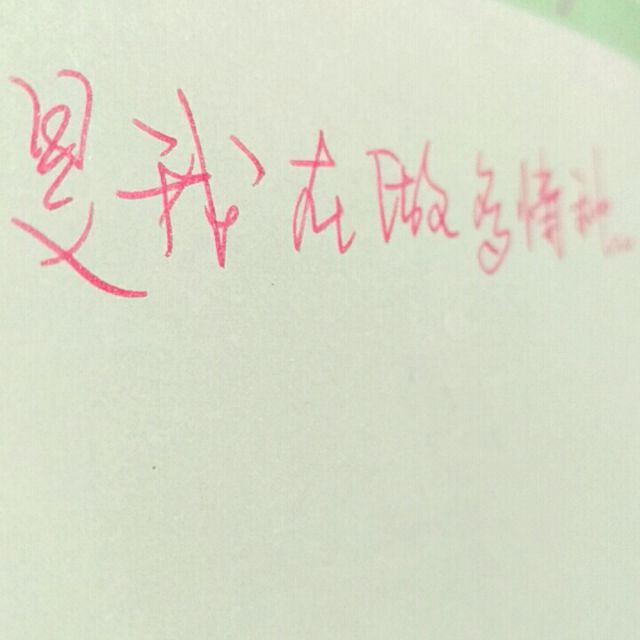 是我在做多情种...